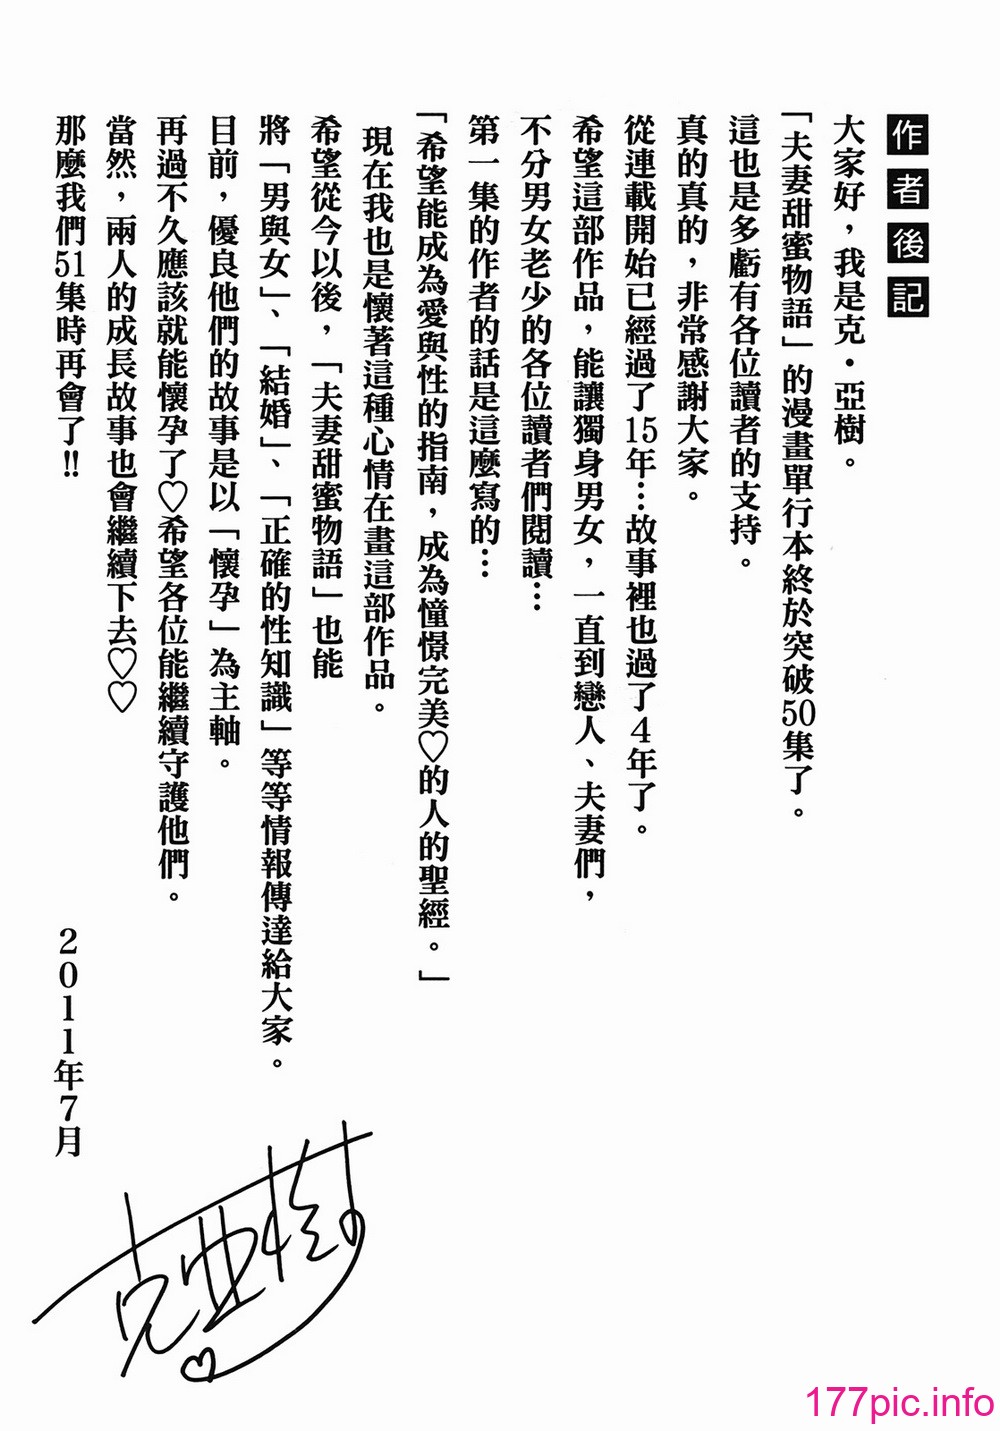 作者後記
大家好，我是克・亞樹。
「夫妻甜蜜物語」的漫畫單行本終於突破50集了。
這也是多虧有各位讀者的支持。
真的真的，非常感謝大家。
從連載開始已經過了15年…故事裡也過了4年了。
希望這部作品，能讓獨身男女，一直到戀人、夫妻們，
不分男女老少的各位讀者們閱讀…
第一集的作者的話是這麼寫的…
「希望能成為愛與性的指南，成為憧憬完美♡的人的聖經。」
現在我也是懷著這種心情在畫這部作品。
希望從今以後，「夫妻甜蜜物語」也能
將「男與女」、「結婚」、「正確的性知識」等等情報傳達給大家。
目前，優良他們的故事是以「懷孕」為主軸。
再過不久應該就能懷孕了♡希望各位能繼續守護他們。
當然，兩人的成長故事也會繼續下去♡♡
那麼我們51集時再會了!!
2011年7月
克亞樹
177pic.info